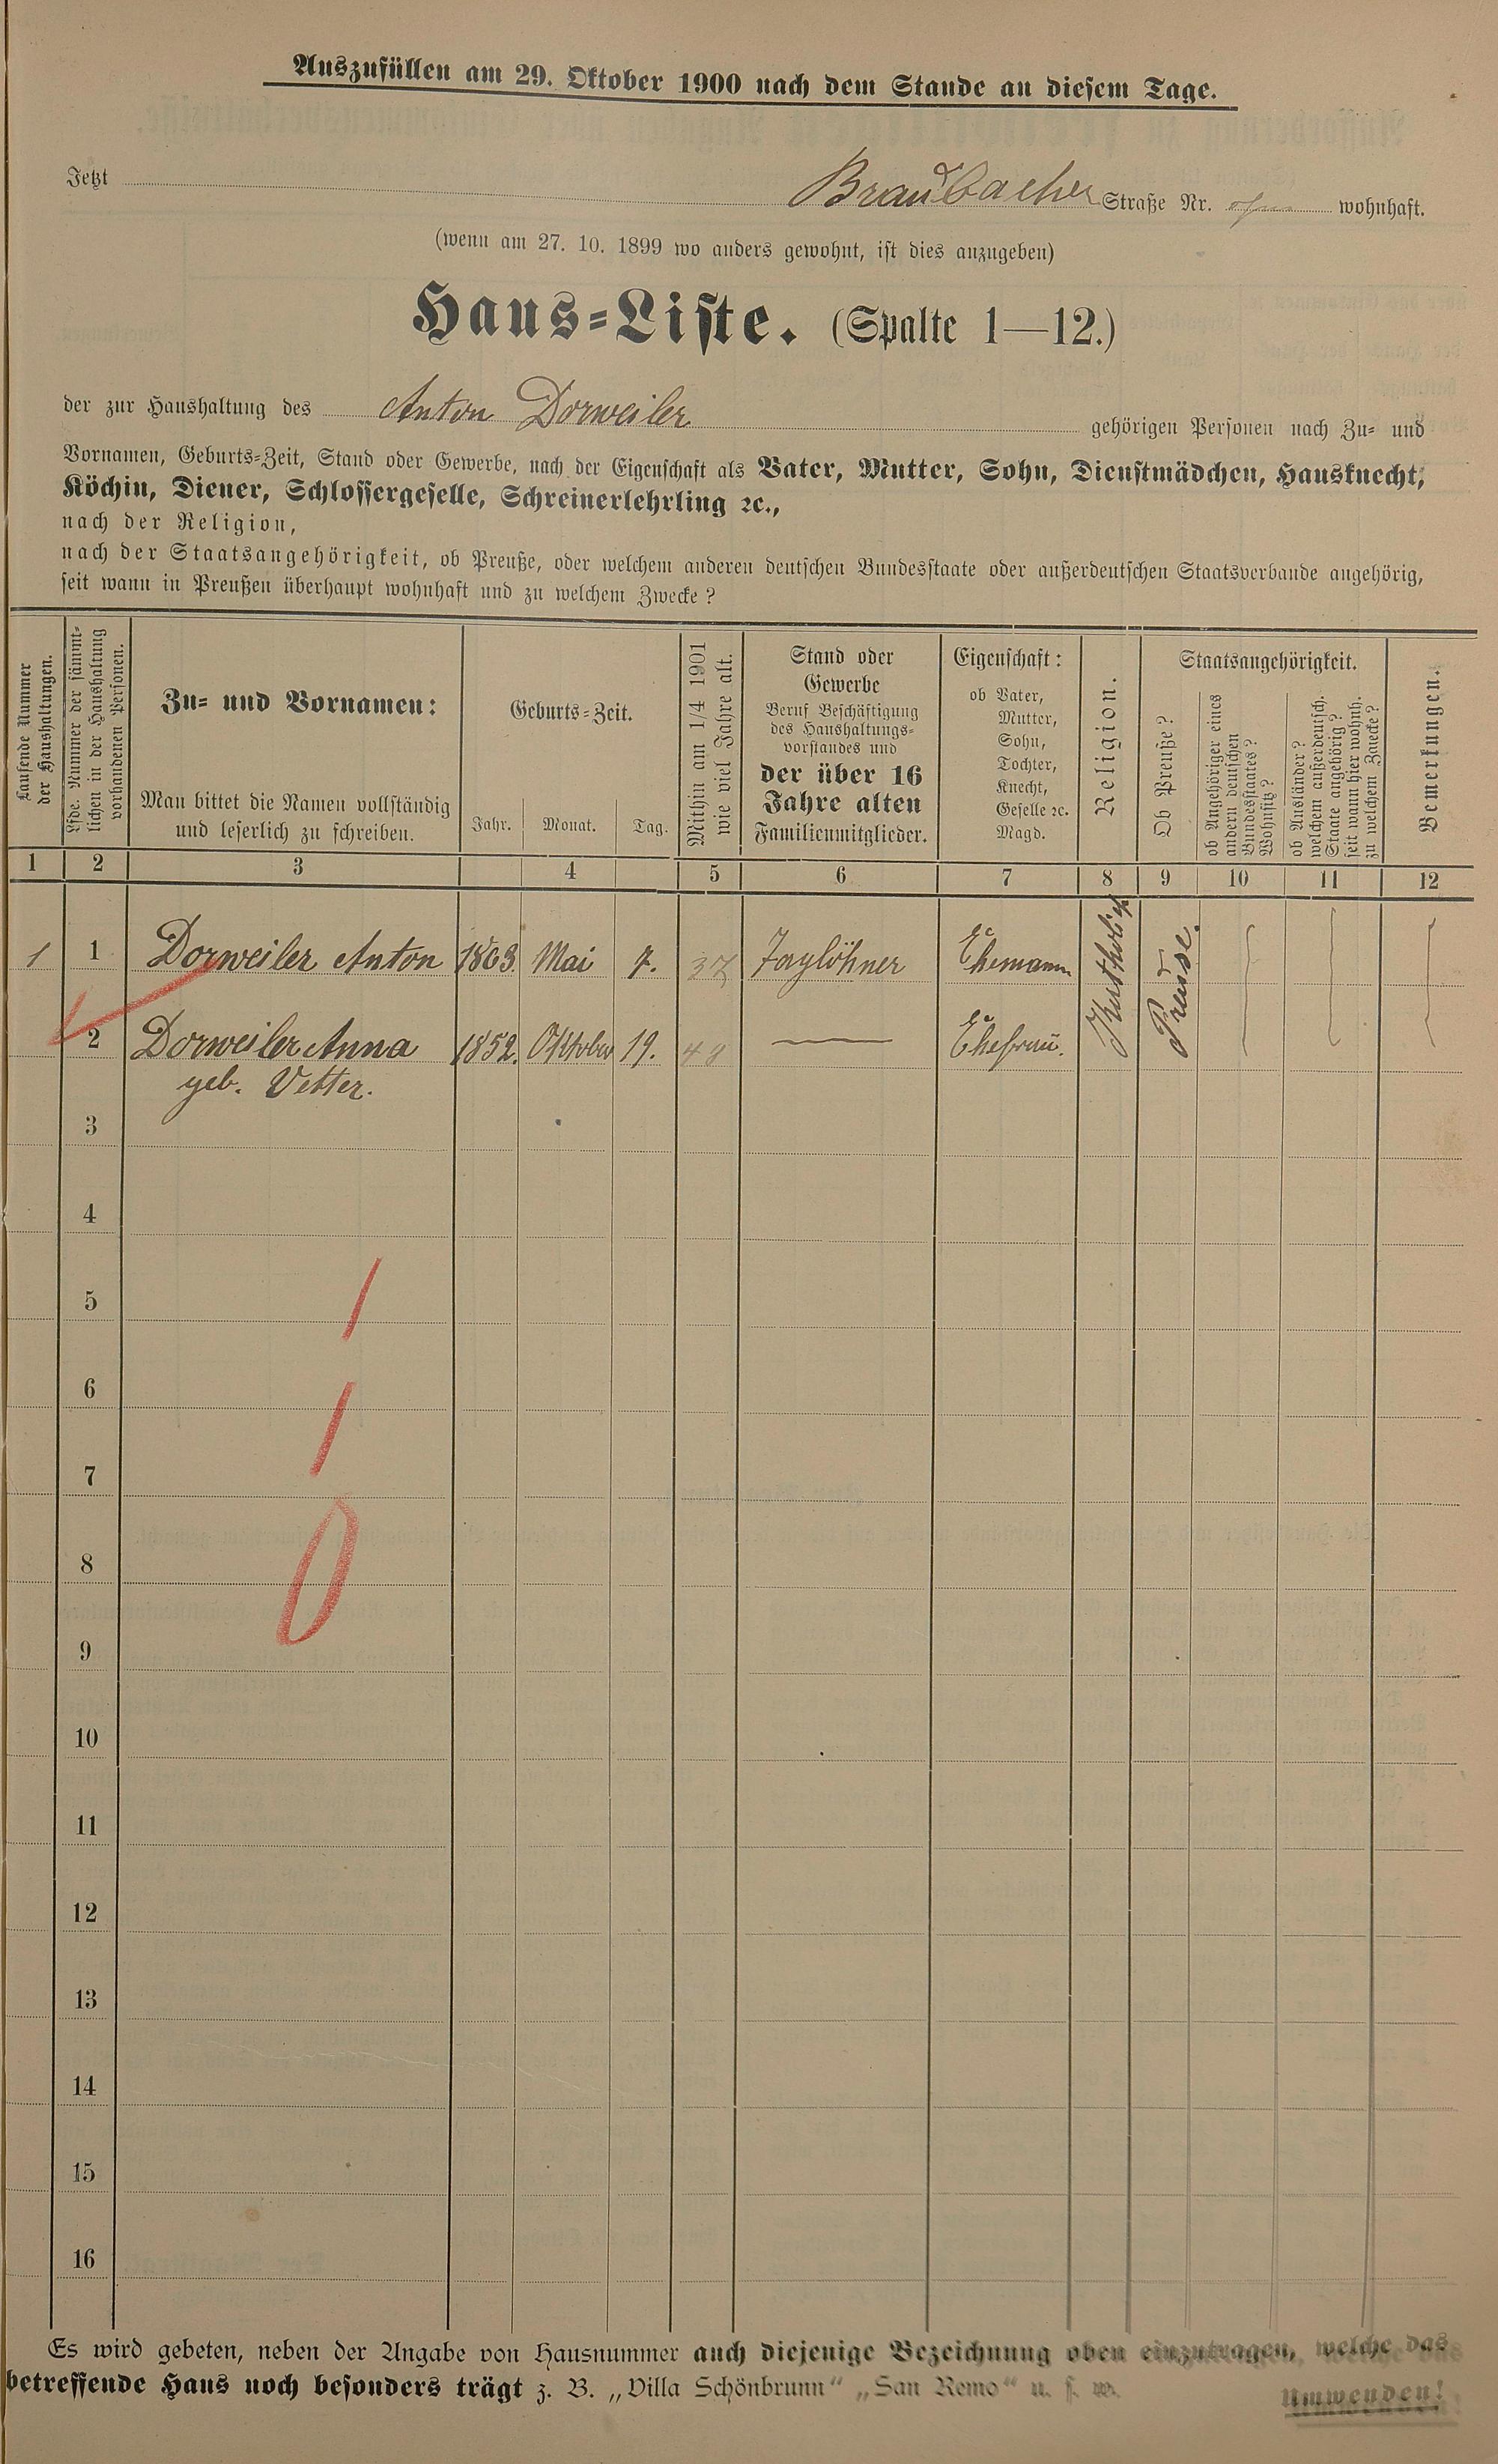 Auszufüllen am 29. Oktober 1900 nach dem Stande an diesem Tage.
Jetzt Braubacher Straße Nr. wohnhaft.
(wenn am 27. 10. 1899 wo anders gewohnt, ist dies anzugeben)
Haus-Liste. (Spalte 1—12.)
der zur Haushaltung des Anton Dorweiler gehörigen Personen nach Zu- und
Vornamen, Geburts-Zeit, Stand oder Gewerbe, nach der Eigenschaft als Vater, Mutter, Sohn, Dienstmädchen, Hausknecht,
Köchin, Diener, Schlossergeselle, Schreinerlehrling ꝛc.,
nach der Religion,
nach der Staatsangehörigkeit, ob Preuße, oder welchem anderen deutschen Bundesstaate oder außerdeutschen Staatsverbande angehörig,
seit wann in Preußen überhaupt wohnhaft und zu welchem Zwecke?
Laufende Nummer
der Haushaltungen.
Lfde. Nummer der sämmt-
lichen in der Haushaltung
vorhandenen Personen.
Zu- und Vornamen:
Man bittet die Namen vollständig
und leserlich zu schreiben.
Geburts-Zeit.
Jahr. Monat. Tag.
Mithin am 1/4 1901
wie viel Jahre alt.
Stand oder
Gewerbe
Beruf Beschäftigung
des Haushaltungs-
vorstandes und
der über 16
Jahre alten
Familienmitglieder.
Eigenschaft:
ob Vater,
Mutter,
Sohn,
Tochter,
Knecht,
Geselle ꝛc.
Magd.
Religion.
Staatsangehörigkeit.
Ob Preuße?
ob Angehöriger eines
andern deutschen
Bundesstaates?
Wohnsitz?
ob Ausländer?
welchem außerdeutsch.
Staate angehörig?
seit wann hier wohnh.
zu welchem Zwecke?
Bemerkungen.
1 2 3 4 5 6 7 8 9 10 11 12
1 1 Dorweiler Anton 1863. Mai 7. 37 Taglöhner Ehemann Katholisch Preuße.
2 Dorweiler Anna 1852. Oktober 19. 48 — Ehefrau.
geb. Vetter.
3
4
5
6
7
8
9
10
11
12
13
14
15
16
Es wird gebeten, neben der Angabe von Hausnummer auch diejenige Bezeichnung oben einzutragen, welche das
betreffende Haus noch besonders trägt z. B. „Villa Schönbrunn“ „San Remo“ u. s. w.
Umwenden!